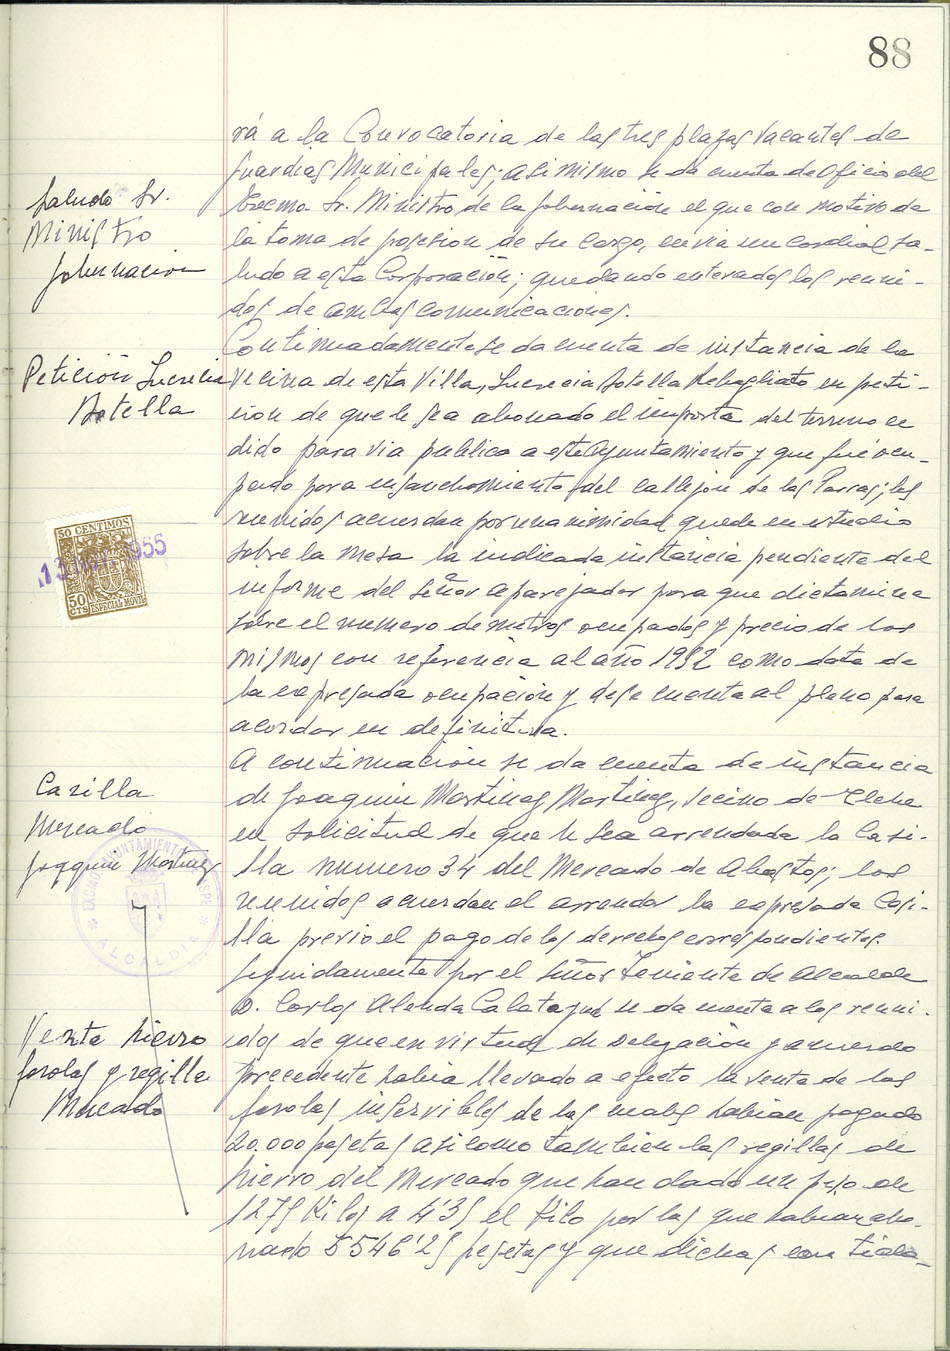 88
rá a la Convocatoria de las tres plazas vacantes de
Guardias Municipales; asi mismo se da cuenta de Oficio del
Saludo Sr.
Ministro
Gobernacion
Excmo. Sr. Ministro de la Gobernación el que con motivo de
la toma de posesion de su cargo, envia un cordial sa-
ludo a esta Corporación; quedando enterados los reuni-
dos de ambas comunicaciones.
Continuadamente se da cuenta de instancia de la
Petición Lucrecia
Botella
vecina de esta Villa, Lucrecia Botella Rebagliato en peti-
cion de que le sea abonado el importe del terreno ce
dido para via publica a este Ayuntamiento y que fué ocu-
pado para ensanchamiento del callejon de las Parras; los
50 CENTIMOS
1955
50
CTS
ESPECIAL MOVIL
reunidos acuerdan por unanimidad quede en estudio
sobre la mesa la indicada instancia pendiente del
informe del Señor aparejador para que dictamine
sobre el numero de metros ocupados y precio de los
mismos con referencia al año 1952 como data de
la expresada ocupación y dese cuenta al pleno para
acordar en definitiva.
A continuacion se da cuenta de instancia
Casilla
Mercado
Joaquin Martinez
de Joaquin Martinez Martinez, vecino de Elche
en solicitud de que le sea arrendada la Casi-
lla numero 34 del Mercado de Abastos; los
reunidos acuerdan el arrendar la expresada Casi-
lla previo el pago de los derechos correspondientes.
AYUNTAMIENTO
ALCALDIA
Seguidamente por el Señor Teniente de Alcalde
D. Carlos Alenda Calatayud se da cuenta a los reuni-
Venta hierro
farolas y regilla
Mercado
dos de que en virtud de Delegación y acuerdo
precedente habia llevado a efecto la venta de las
farolas inservibles de las cuales habian pagado
20.000 pesetas asi como tambien las regillas de
hierro del Mercado que han dado un peso de
1275 Kilos a 4'35 el Kilo por las que habian abo-
nado 5546'25 pesetas y que dichas cantida-